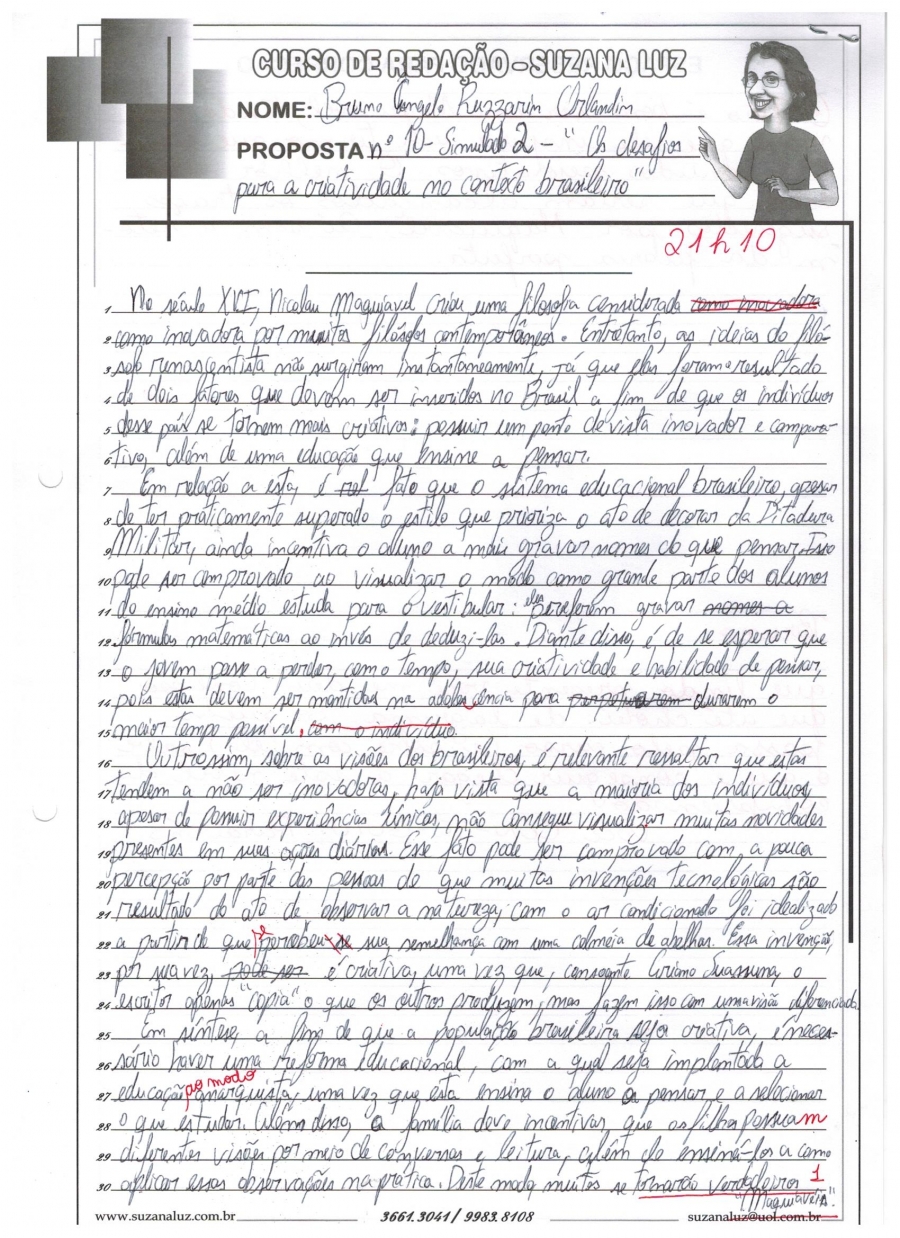 CURSO DE REDAÇÃO - SUZANA LUZ
NOME: Bruno Ângelo Ruzzarin Orlandin
PROPOSTA nº 10 - Simulado 2 - "Os desafios
para a criatividade no contexto brasileiro"
21h10
1 No século XVI, Nicolau Maquiavel criou uma filosofia considerada como inovadora
2 como inovadora por muitos filósofos contemporâneos. Entretanto, as ideias do filó-
3 sofo renascentista não surgiram instantaneamente, já que elas foram o resultado
4 de dois fatores que devem ser inseridos no Brasil a fim de que os indivíduos
5 desse país se tornem mais criativos: possuir um ponto de vista inovador e compara-
6 tivo, além de uma educação que ensine a pensar.
7 Em relação a esta, é fato que o sistema educacional brasileiro, apesar
8 de ter praticamente superado o estilo que prioriza o ato de decorar da Ditadura
9 Militar, ainda incentiva o aluno a mais gravar nomes do que pensar. Isso
10 pode ser comprovado, ao visualizar o modo como grande parte dos alunos
11 do ensino médio estuda para o vestibular: eles preferem gravar nomes a
12 fórmulas matemáticas ao invés de deduzi-las. Diante disso, é de se esperar que
13 o jovem passe a perder, com o tempo, sua criatividade e habilidade de pensar,
14 pois estas devem ser mantidas na adolescência para perpetuarem durarem o
15 maior tempo possível, com o indivíduo.
16 Outrossim, sobre as visões dos brasileiros, é relevante ressaltar que estas
17 tendem a não ser inovadoras, haja vista que a maioria dos indivíduos,
18 apesar de possuir experiências únicas, não consegue visualizar muitas novidades
19 presentes em suas ações diárias. Esse fato pode ser comprovado com, a pouca
20 percepção por parte das pessoas de que muitas invenções tecnológicas são
21 resultado do ato de observar a natureza, com o ar condicionado foi idealizado
22 a partir do que se percebeu-se sua semelhança com uma colmeia de abelhas. Essa invenção,
23 por sua vez, pode ser é criativa, uma vez que, consoante Ariano Suassuna, o
24 escritor apenas "copia" o que os outros produzem, mas fazem isso com uma visão diferenciada.
25 Em síntese, a fim de que a população brasileira seja criativa, é neces-
26 sário haver uma reforma educacional, com a qual seja implantada a
27 educação ao modo anarquista, uma vez que esta ensina o aluno a pensar e a selecionar
28 o que estudar. Além disso, a família deve incentivar, que os filhos possuam
29 diferentes visões por meio de conversas e leitura, além de ensiná-los a como
30 aplicar essas observações na prática. Deste modo, muitos se tornarão verdadeiros 1
"Maquiavéis".
www.suzanaluz.com.br 3661.3041 / 9983.8108 suzanaluz@uol.com.br